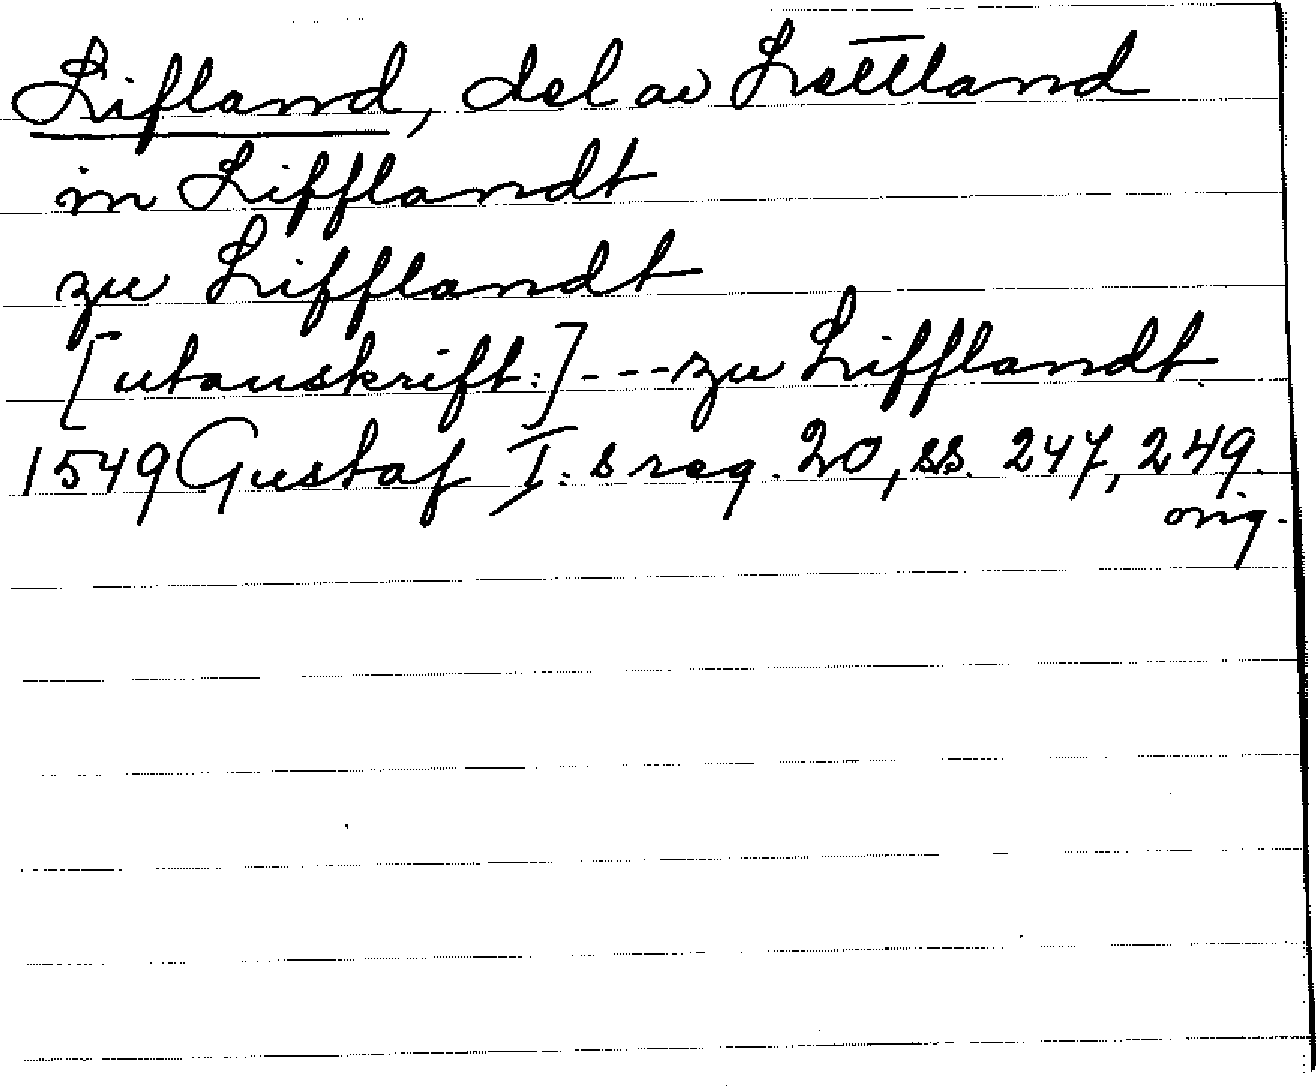 Lifland, del av Lettland
in Lifflandt
zu Lifflandt
[utanskrift:]---zu Lifflandt
1549 Gustaf I:s reg. 20, ss. 247, 249.
orig.